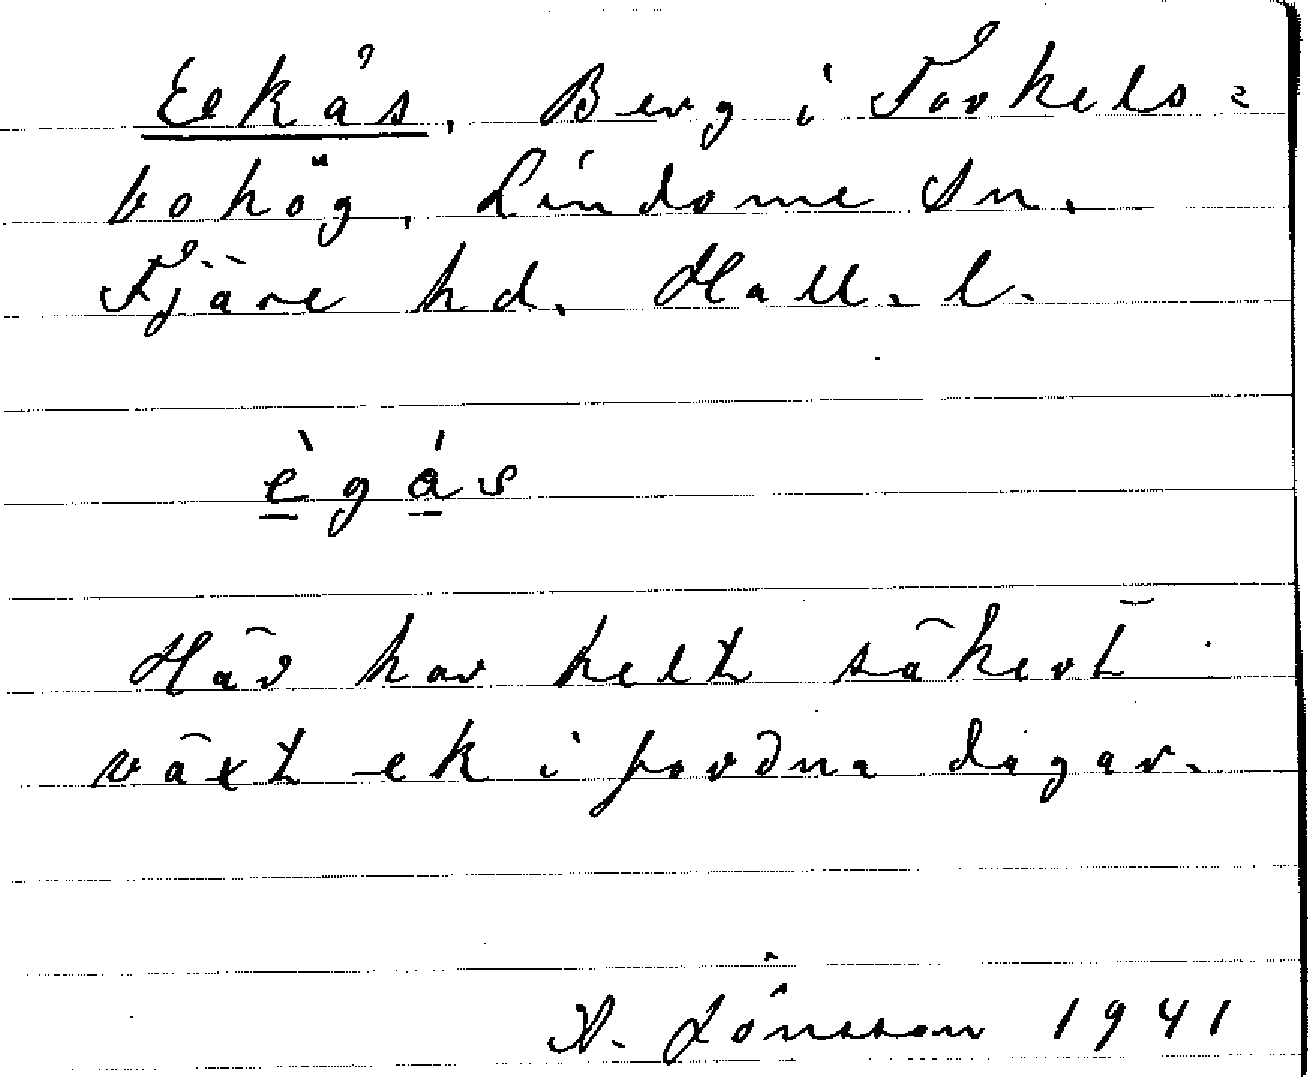 Ekås. Berg i Torkels=
bohög, Lindome Sn.
Fjäre hd. Hall. l.
ègás
Här har helt säkert
växt ek i fordna dagar.
A. Jönsson 1941